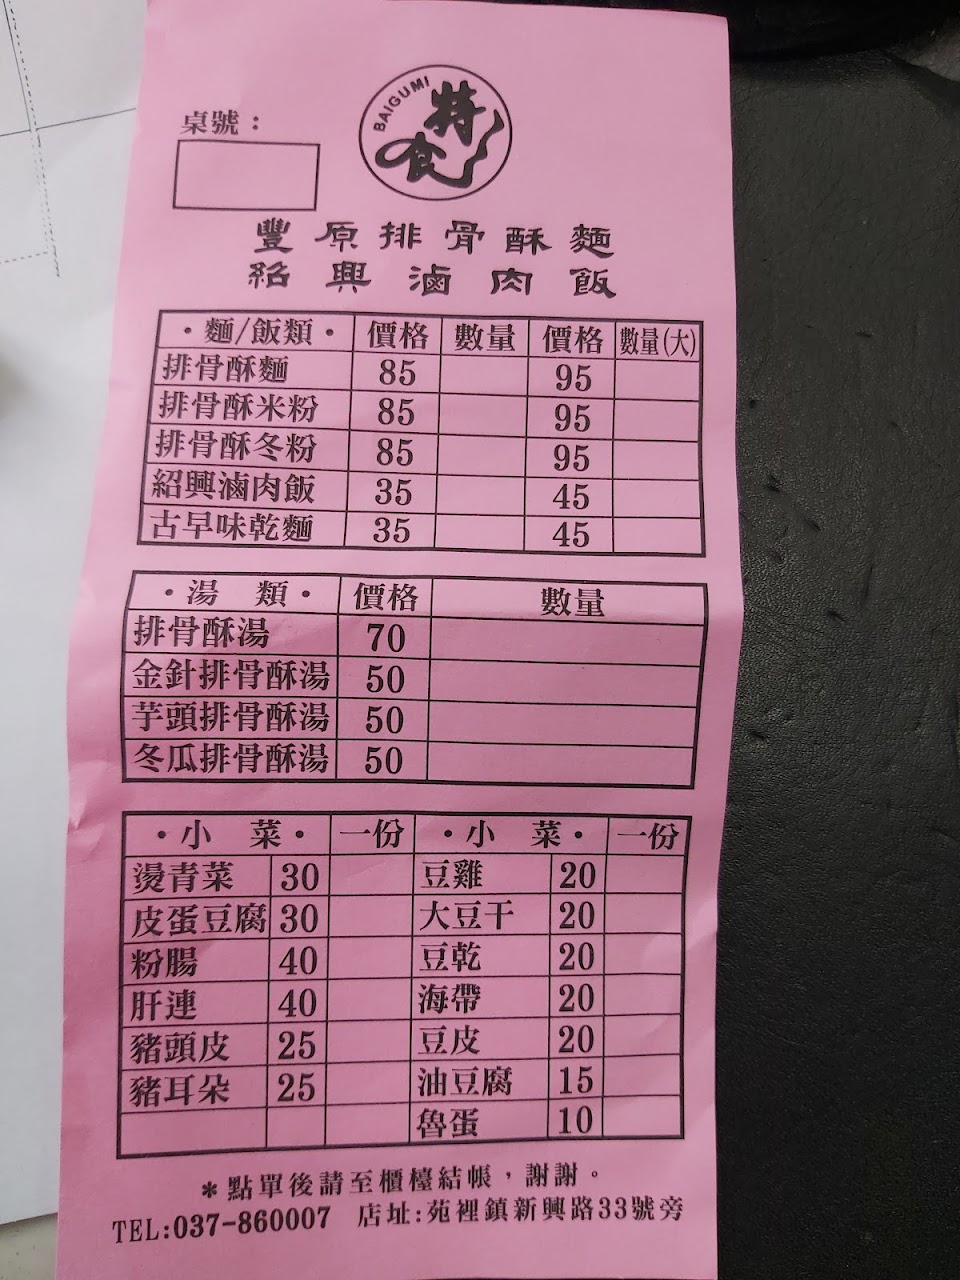 桌號：
BAIGUMI
特食
豐原排骨酥麵
紹興滷肉飯
·麵/飯類· 價格 數量 價格 數量(大)
排骨酥麵 85 95
排骨酥米粉 85 95
排骨酥冬粉 85 95
紹興滷肉飯 35 45
古早味乾麵 35 45
·湯 類· 價格 數量
排骨酥湯 70
金針排骨酥湯 50
芋頭排骨酥湯 50
冬瓜排骨酥湯 50
·小 菜· 一份 ·小 菜· 一份
燙青菜 30 豆雞 20
皮蛋豆腐 30 大豆干 20
粉腸 40 豆乾 20
肝連 40 海帶 20
豬頭皮 25 豆皮 20
豬耳朵 25 油豆腐 15
魯蛋 10
＊點單後請至櫃檯結帳，謝謝。
TEL:037-860007 店址:苑裡鎮新興路33號旁